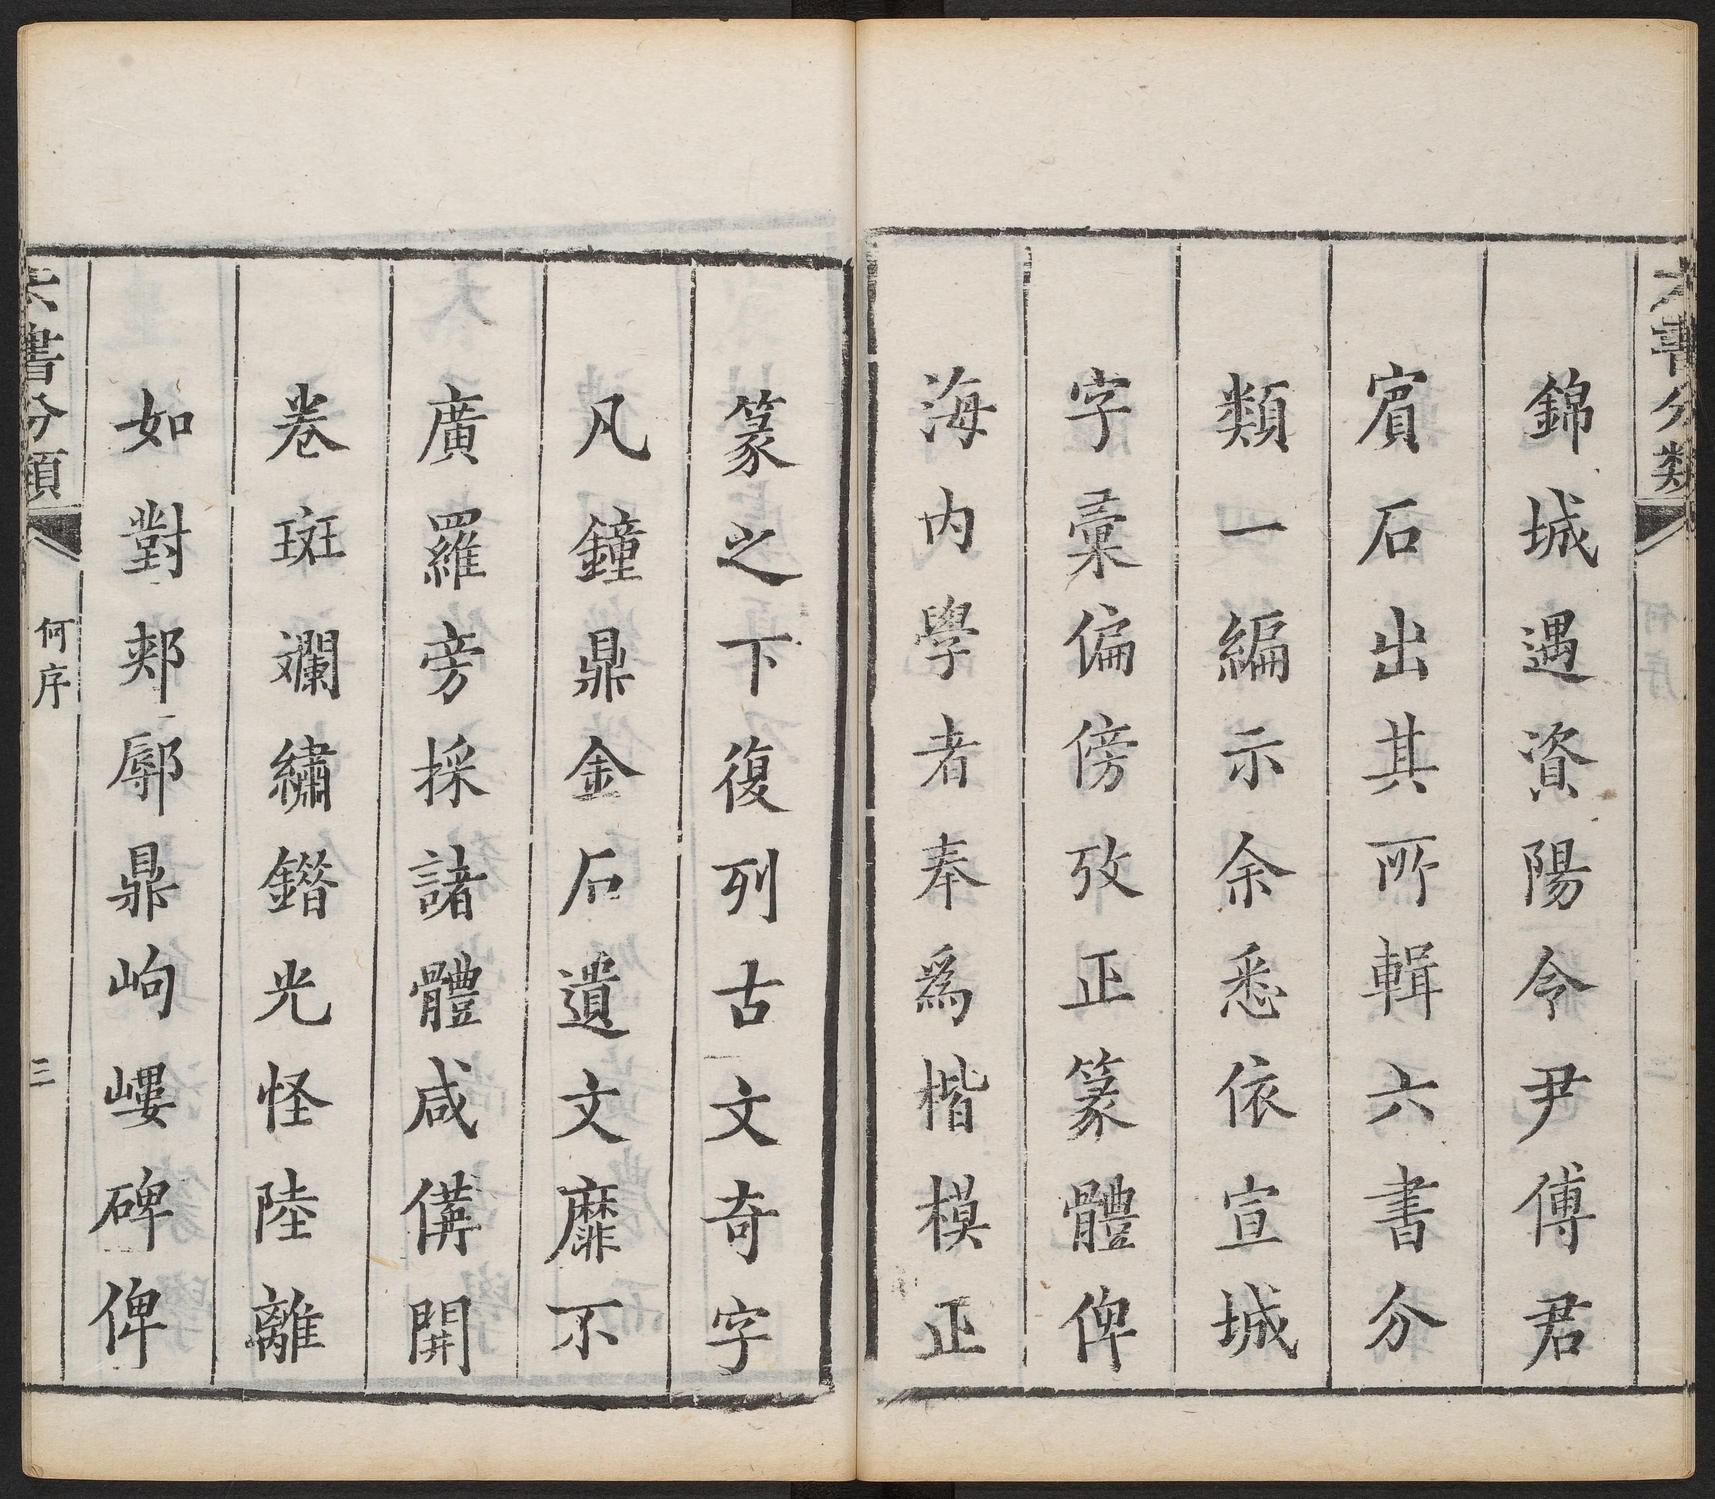 六書分類
錦城遇資陽令尹傅君
賔石出其所輯六書分
類一編示余悉依宣城
字彙偏傍攷正篆體俾
海内學者奉爲楷模正
篆之下復列古文奇字
凡鐘鼎金石遺文靡不
廣羅旁採諸體咸備開
卷斑斕繡鐕光怪陸離
如對郟鄏鼎岣嶁碑俾
六書分類
何序
三